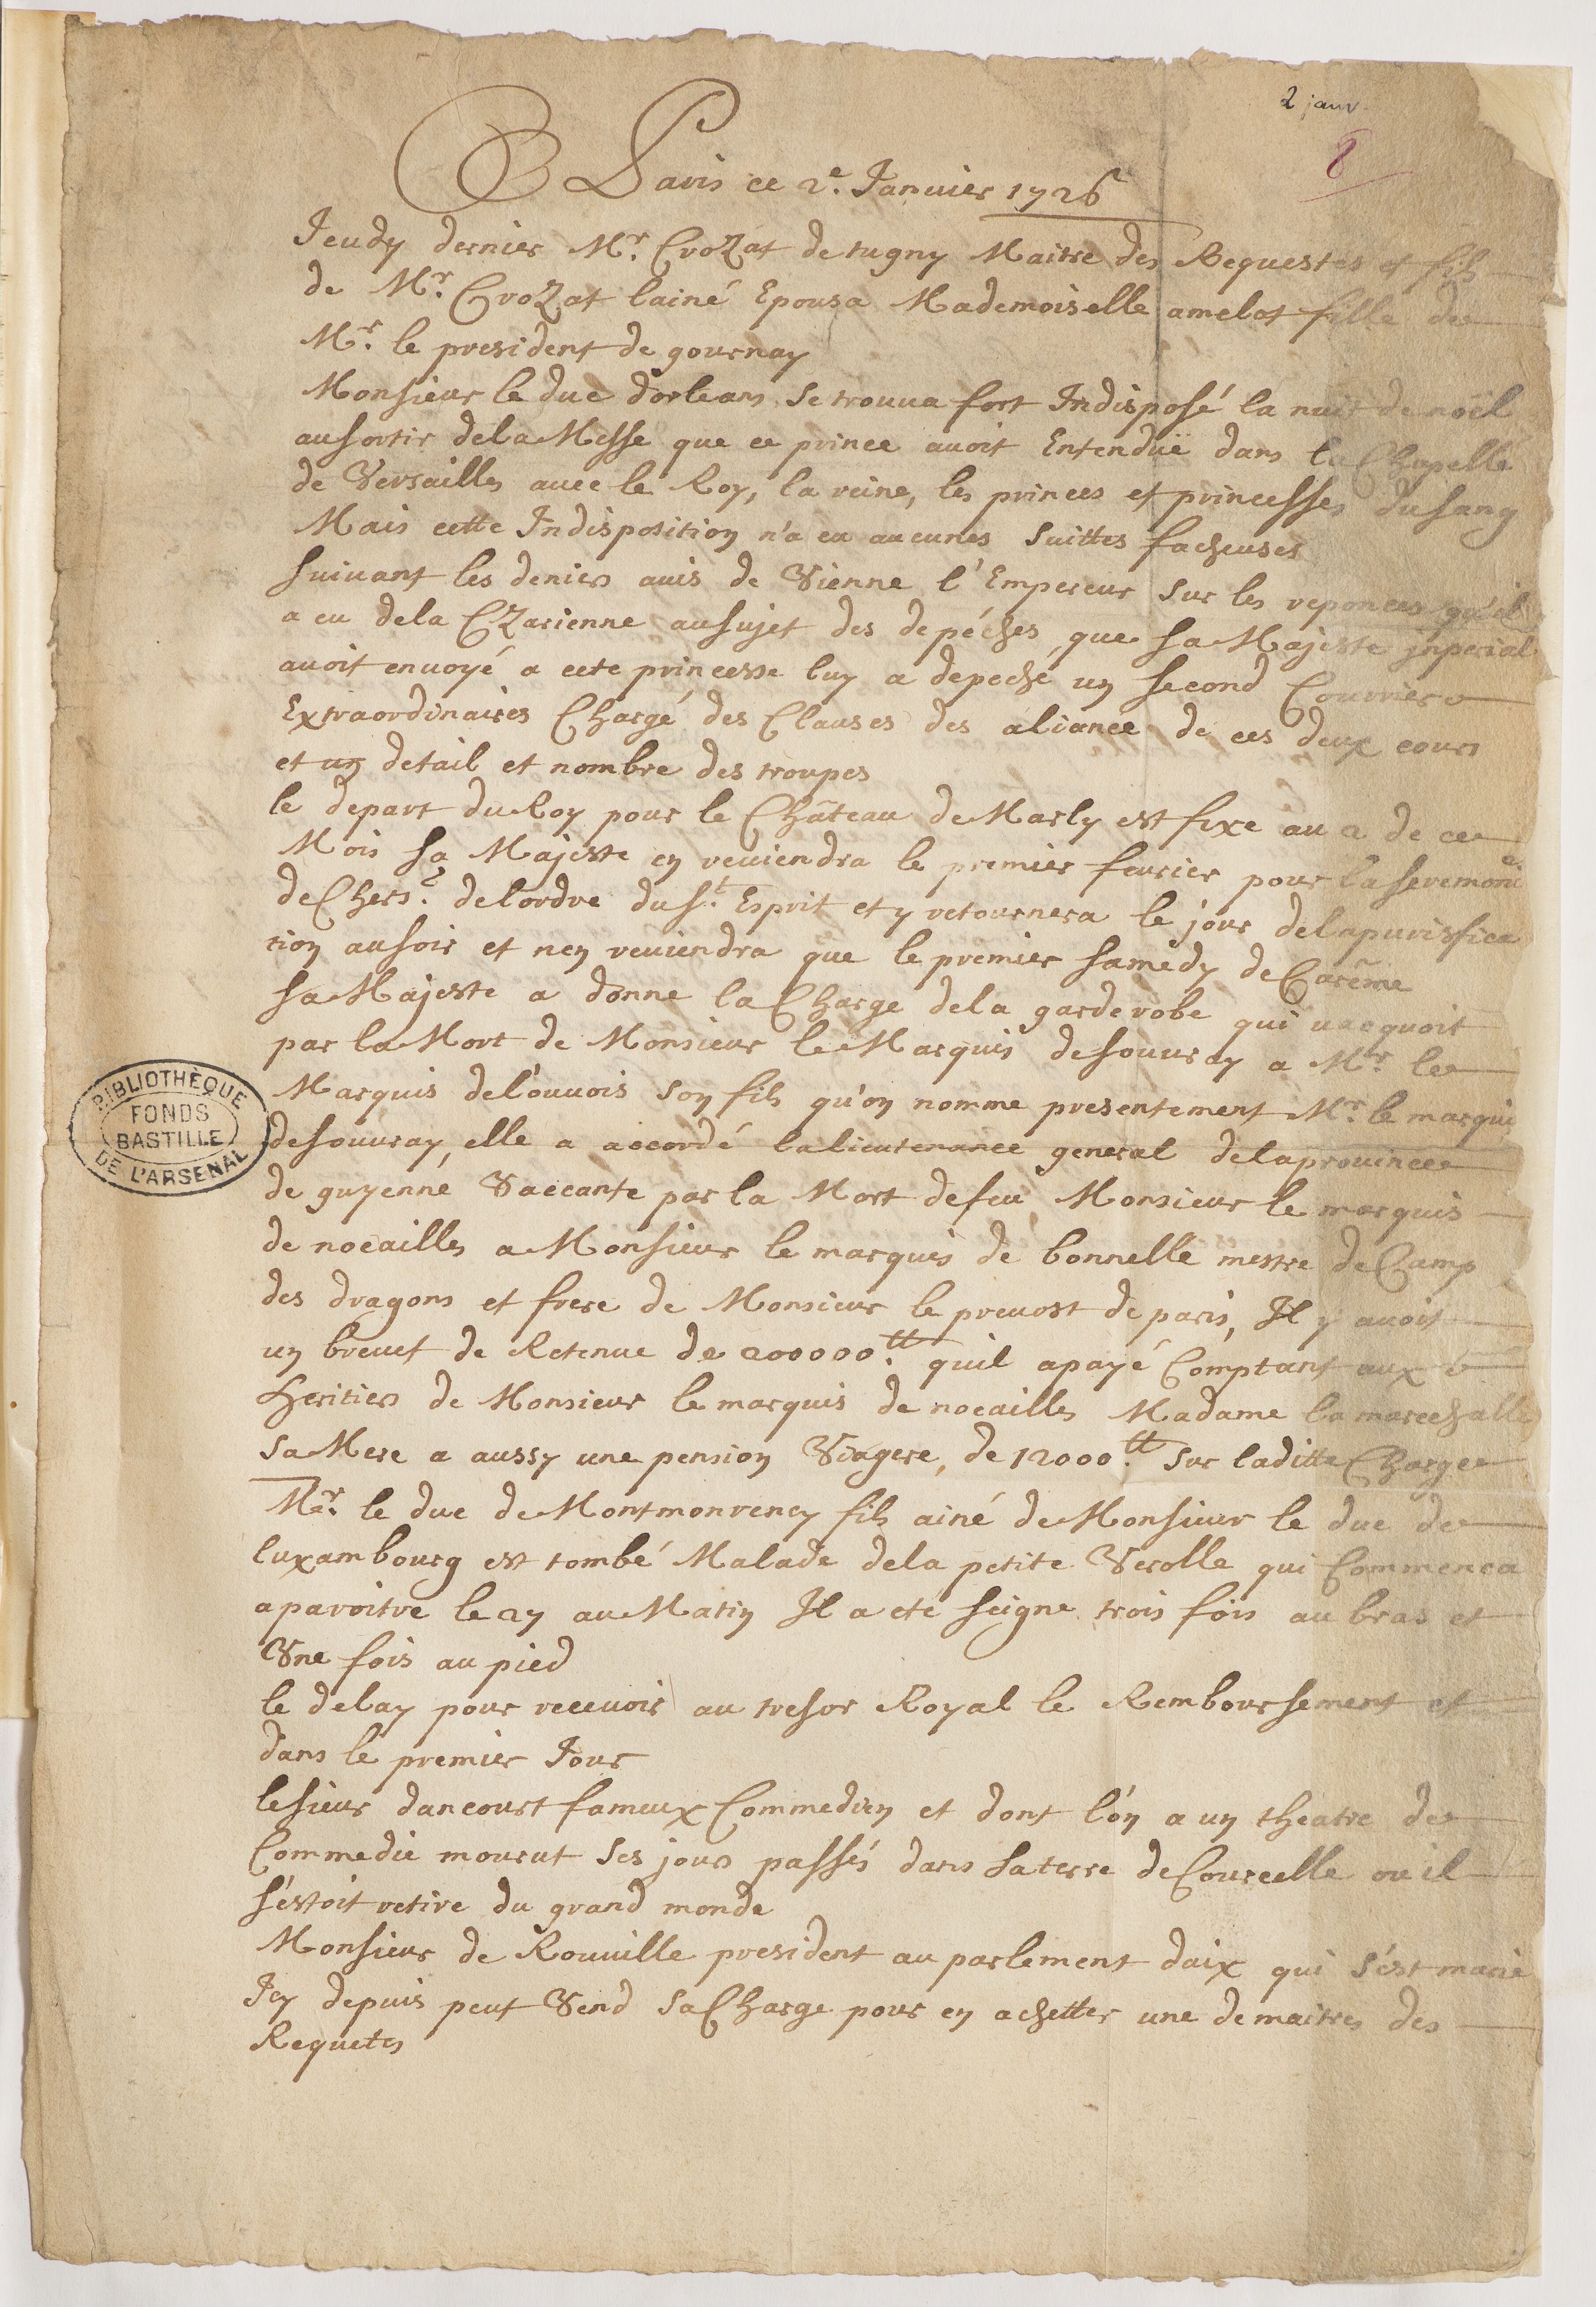 2 janv.
8
Paris ce 2e. Janvier 1726
Jeudy dernier Mr. CroZat de tugny Maitre des Requestes et fils
de Mr. CroZat lainé Epousa Mademoiselle amelot fille de
Mr. le president de gournay
Monsieur le duc dorleans se trouua fort Indisposé la nuit de noël
au sortir dela Messe que ce prince auoit Entenduë dans la Chapelle
de Versailles auec le Roy, la reine, les princes et princesses du sang
Mais cette Indisposition n'a eu aucunes suittes facheuses
suiuant les deniers auis de Vienne l'Empereur sur les reponces qu'il
a eu dela CZarienne au sujet des depéches, que sa Majeste jnperial
auoit enuoyé a cete princesse luy a depeché un second Courrier
Extraordinaires Chargé des Clauses des aliance de ces deux cours
et un detail et nombre des troupes
le depart du Roy pour le Château de Marly est fixe au 2 de ce
Mois sa Majeste en reuiendra le premier feurier pour la seremonie
de Chers. delordre du st. Esprit et y retournera le jour dela purisfica
tion au soir et nen reuiendra que le premier samedy de Carême
sa Majeste a donne la Charge dela garderobe qui uacquoit
par la Mort de Monsieur le Marquis de souuray a Mr. le
Marquis de louuois son fils qu'on nomme presentement Mr. le marquis
de souuray, elle a accordé la lieutenance general dela prouince
de guyenne Vaccante par la Mort de feu Monsieur le marquis
de noeailles a Monsieur le marquis de bonnelle mestre de Camp
des dragons et frere de Monsieur le preuost de paris, Il y auoit
un breuet de Retenue de 200000.tt quil a payé Comptant aux
Heritiers de Monsieur le marquis de noeailles Madame la marechalle
sa Mere a aussy une pension Viagere, de 12000.tt sur laditte Charge
Mr. le duc de Montmorency fils ainé de Monsieur le duc de
luxambourg est tombé Malade dela petite Verolle qui Commenca
aparoitre le 27 au Matin Il a eté seigne trois fois au bras et
Vne fois au pied
le delay pour receuoir au tresor Royal le Remboursement et
dans le premier Jour
le sieur dancourt fameux Commedien et dont l'on a un theatre de
Commedie mourut ses jours passés dans sa terre de Courcelle ou il
s'estoit retire du grand monde
Monsieur de Rouuille president au parlement daix qui s'est marié
Icy depuis peut Vend sa Charge pour en achetter une de maitres des
Requetes
BIBLIOTHÈQUE
FONDS
BASTILLE
DE L'ARSENAL